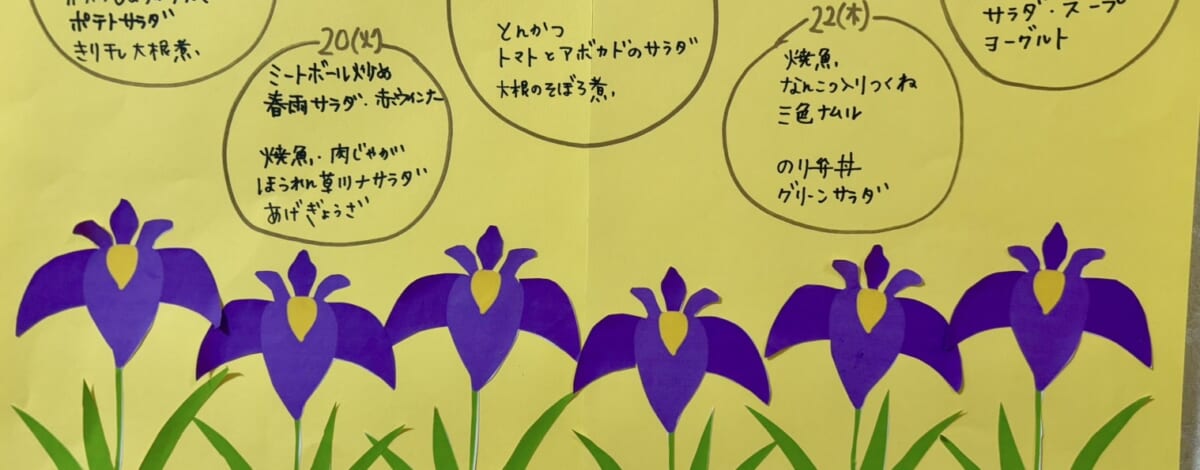 ポテトサラダ
きり干し大根煮
20(火)
ミートボール炒め
春雨サラダ・赤ウインナー
焼魚・肉じゃが
ほうれん草ツナサラダ
あげぎょうざ
とんかつ
トマトとアボカドのサラダ
大根のそぼろ煮
22(木)
焼魚
なんこつ入りつくね
三色ナムル
のり弁丼
グリーンサラダ
サラダ・スープ
ヨーグルト